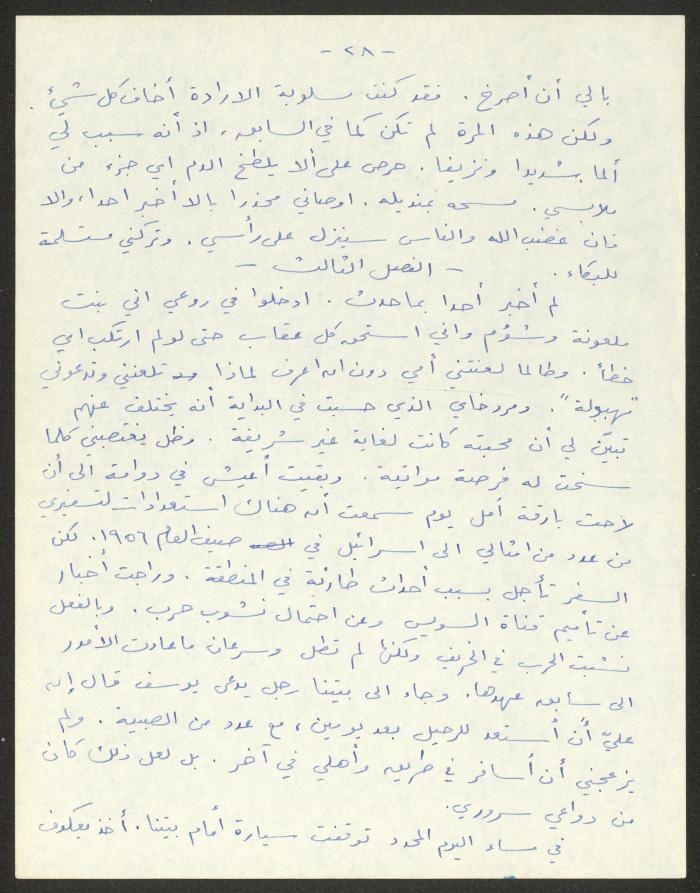 - ٢٨ -
بالي أن أصرخ . فقد كنت مسلوبة الارادة أخاف كل شيء .
ولكن هذه المرة لم تكن كما في السابق ، اذ أنه سبب لي
ألما شديدا ونزيفا . حرص على ألا يلطخ الدم اي جزء من
ملابسي . مسحه بمنديله . اوصاني محذرا بالا أخبر احدا ، والا
فان غضب الله والناس سينزل على رأسي . وتركني مستسلمة
للبكاء .
- الفصل الثالث -
لم أخبر أحدا بما حدث . ادخلوا في روعي اني بنت
ملعونة وشؤم واني استحق كل عقاب حتى لو لم ارتكب اي
خطأ . وطالما لعنتني أمي دون ان اعرف لماذا تلعنني وتدعوني
"مهبولة" . ومردخاي الذي حسبت في البداية أنه يختلف عنهم
تبيّن لي أن محبته كانت لغاية غير شريفة . وظل يغتصبني كلما
سنحت له فرصة مواتية . وبقيت أعيش في دوامة الى أن
لاحت بارقة أمل يوم سمعت أن هناك استعدادات لتسفيري
مع عدد من امثالي الى اسرائيل في صيف العام ١٩٥٦ . لكن
السفر تأجل بسبب أحداث طارئة في المنطقة . وراجت أخبار
عن تأميم قناة السويس وعن احتمال نشوب حرب . وبالفعل
نشبت الحرب في الخريف ولكنها لم تطل وسرعان ما عادت الأمور
الى سابق عهدها . وجاء الى بيتنا رجل يدعى يوسف قال إن
عليّ أن أستعد للرحيل بعد يومين ، مع عدد من الصبية . ولم
يزعجني أن أسافر في طريق وأهلي في آخر . بل لعل ذلك كان
من دواعي سروري .
في مساء اليوم المحدد توقفت سيارة أمام بيتنا . أخذ يعكوف